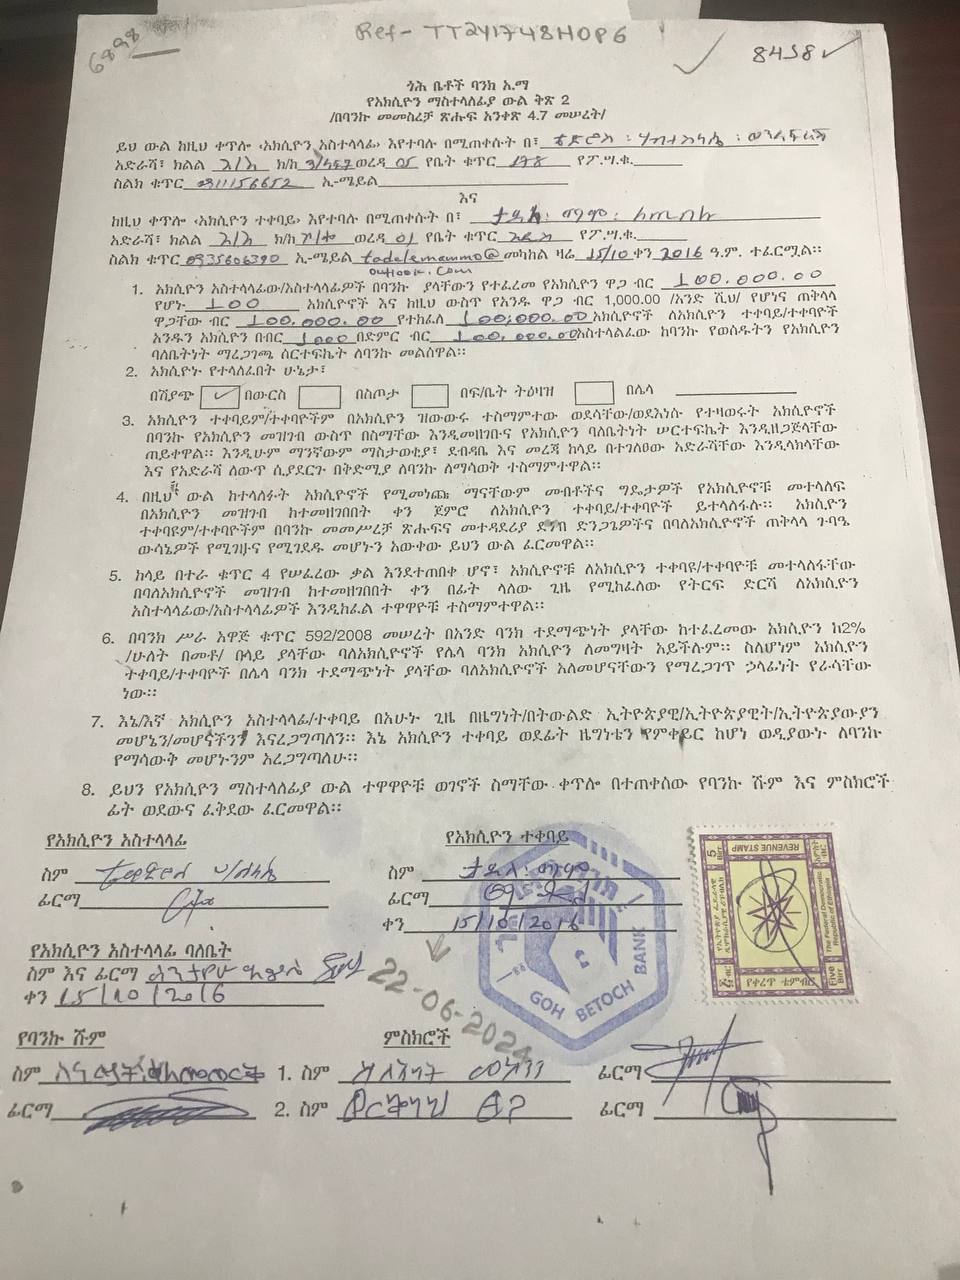 Ref- TT241748H0P6
6898
8458
ጎሕ ቤቶች ባንክ አ.ማ
የአክሲዮን ማስተላለፊያ ውል ቅጽ 2
/በባንኩ መመስረቻ ጽሑፍ አንቀጽ 4.7 መሠረት/
ይህ ውል ከዚህ ቀጥሎ ‹አክሲዮን አስተላላፊ› እየተባሉ በሚጠቀሱት በ፣
አድራሻ፣ ክልል አ/አ ክ/ከ ወረዳ 05 የቤት ቁጥር 178 የፖ.ሣ.ቁ.
ስልክ ቁጥር 0911156652 ኢ-ሜይል
እና
ከዚህ ቀጥሎ ‹አክሲዮን ተቀባይ› እየተባሉ በሚጠቀሱት በ፣ ታደለ፡ ማሞ፡
አድራሻ፣ ክልል አ/አ ክ/ከ ወረዳ 01 የቤት ቁጥር አዲስ የፖ.ሣ.ቁ.
ስልክ ቁጥር 0935606390 ኢ-ሜይል tadelemammo@ መካከል ዛሬ 15/10 ቀን 2016 ዓ.ም. ተፈርሟል፡፡
outlook.com
1. አክሲዮን አስተላላፊው/አስተላላፊዎች በባንኩ ያላቸውን የተፈረመ የአክሲዮን ዋጋ ብር 100.000.00
የሆኑ 100 አክሲዮኖች እና ከዚህ ውስጥ የአንዱ ዋጋ ብር 1,000.00 /አንድ ሺህ/ የሆነና ጠቅላላ
ዋጋቸው ብር 100.000.00 የተከፈለ 100,000.00 አክሲዮኖች ለአክሲዮን ተቀባይ/ተቀባዮች
አንዱን አክሲዮን በብር 1000 በድምር ብር 100,000.00 አስተላልፈው ከባንኩ የወሰዱትን የአክሲዮን
ባለቤትነት ማረጋገጫ ሰርተፍኬት ለባንኩ መልሰዋል፡፡
2. አክሲዮኑ የተላለፈበት ሁኔታ፣
በሽያጭ በውርስ በስጦታ በፍ/ቤት ትዕዛዝ በሌላ
3. አክሲዮን ተቀባይም/ተቀባዮችም በአክሲዮን ዝውውሩ ተስማምተው ወደሳቸው/ወደእነሱ የተዛወሩት አክሲዮኖች
በባንኩ የአክሲዮን መዝገብ ውስጥ በስማቸው እንዲመዘገቡና የአክሲዮን ባለቤትነት ሠርተፍኬት እንዲዘጋጅላቸው
ጠይቀዋል፡፡ እንዲሁም ማንኛውም ማስታወቂያ፣ ደብዳቤ እና መረጃ ከላይ በተገለፀው አድራሻቸው እንዲላክላቸው
እና የአድራሻ ለውጥ ሲያደርጉ በቅድሚያ ለባንኩ ለማሳወቅ ተስማምተዋል፡፡
4. በዚህ ውል ከተላለፉት አክሲዮኖች የሚመነጩ ማናቸውም መብቶችና ግዴታዎች የአክሲዮኖቹ መተላለፍ
በአክሲዮን መዝገብ ከተመዘገበበት ቀን ጀምሮ ለአክሲዮን ተቀባይ/ተቀባዮች ይተላለፋሉ፡፡ አክሲዮን
ተቀባዩም/ተቀባዮችም በባንኩ መመሥረቻ ጽሑፍና መተዳደሪያ ደንብ ድንጋጌዎችና በባለአክሲዮኖች ጠቅላላ ጉባዔ
ውሳኔዎች የሚገዙና የሚገደዱ መሆኑን አውቀው ይህን ውል ፈርመዋል፡፡
5. ከላይ በተራ ቁጥር 4 የሠፈረው ቃል እንደተጠበቀ ሆኖ፣ አክሲዮኖቹ ለአክሲዮን ተቀባዩ/ተቀባዮቹ መተላለፋቸው
በባለአክሲዮኖች መዝገብ ከተመዘገበበት ቀን በፊት ላለው ጊዜ የሚከፈለው የትርፍ ድርሻ ለአክሲዮን
አስተላላፊው/አስተላላፊዎች እንዲከፈል ተዋዋዮቹ ተስማምተዋል፡፡
6. በባንክ ሥራ አዋጅ ቁጥር 592/2008 መሠረት በአንድ ባንክ ተደማጭነት ያላቸው ከተፈረመው አክሲዮን ከ2%
/ሁለት በመቶ/ በላይ ያላቸው ባለአክሲዮኖች የሌላ ባንክ አክሲዮን ለመግዛት አይችሉም፡፡ ስለሆነም አክሲዮን
ተቀባይ/ተቀባዮች በሌላ ባንክ ተደማጭነት ያላቸው ባለአክሲዮኖች አለመሆናቸውን የማረጋገጥ ኃላፊነት የራሳቸው
ነው፡፡
7. እኔ/እኛ አክሲዮን አስተላላፊ/ተቀባይ በአሁኑ ጊዜ በዜግነት/በትውልድ ኢትዮጵያዊ/ኢትዮጵያዊት/ኢትዮጵያውያን
መሆኔን/መሆናችንን እናረጋግጣለን፡፡ እኔ አክሲዮን ተቀባይ ወደፊት ዜግነቴን የምቀይር ከሆነ ወዲያውኑ ለባንኩ
የማሳውቅ መሆኑንም አረጋግጣለሁ፡፡
8. ይህን የአክሲዮን ማስተላለፊያ ውል ተዋዋዮቹ ወገኖች ስማቸው ቀጥሎ በተጠቀሰው የባንኩ ሹም እና ምስክሮች
ፊት ወደውና ፈቅደው ፈርመዋል፡፡
የአክሲዮን አስተላላፊ
የአክሲዮን ተቀባይ
ስም
ስም ታደለ፡ ማሞ
ፊርማ
ፊርማ
ቀን 15/10/2016
GOH BETOCH BANK
5 Birr
REVENUE STAMP
The Federal Democratic Republic of Ethiopia
Five Birr
የቀረጥ ቴምብር
የአክሲዮን አስተላላፊ ባለቤት
ስም እና ፊርማ
ቀን 15/10/2016
22-06-2024
የባንኩ ሹም
ምስክሮች
ስም
1. ስም
ፊርማ
ፊርማ
2. ስም
ፊርማ